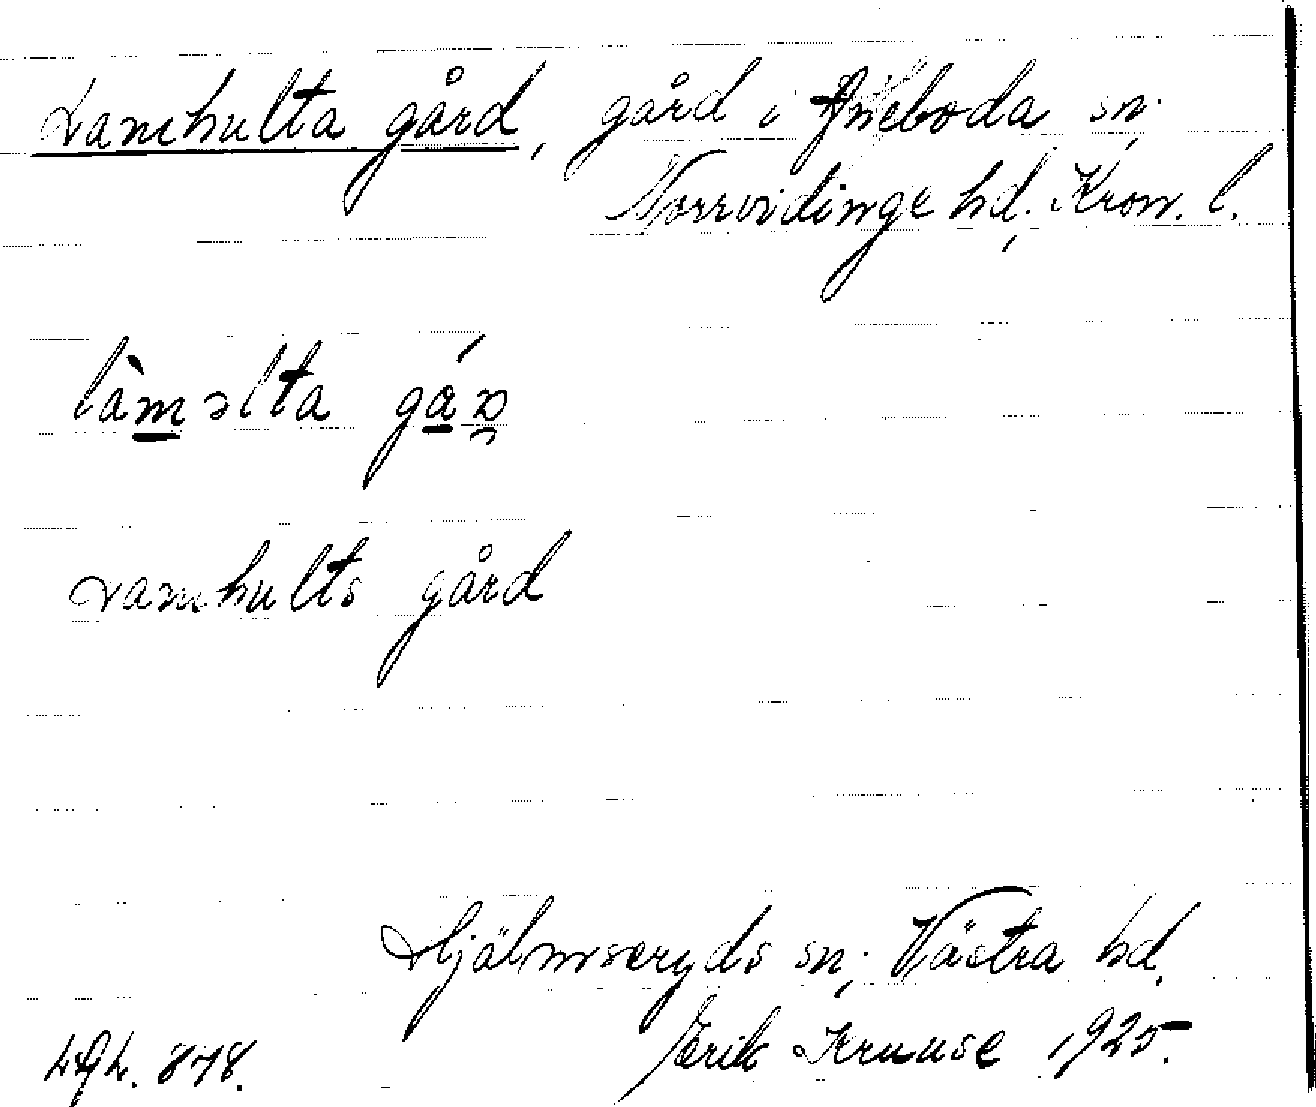 Lamhulta gård, gård i Aneboda sn.
Norrvidinge hd, Kron. l.
làməlta gá
Lamhults gård
Hjälmseryds sn, Västra hd.
878. Erik Kruuse 1925.